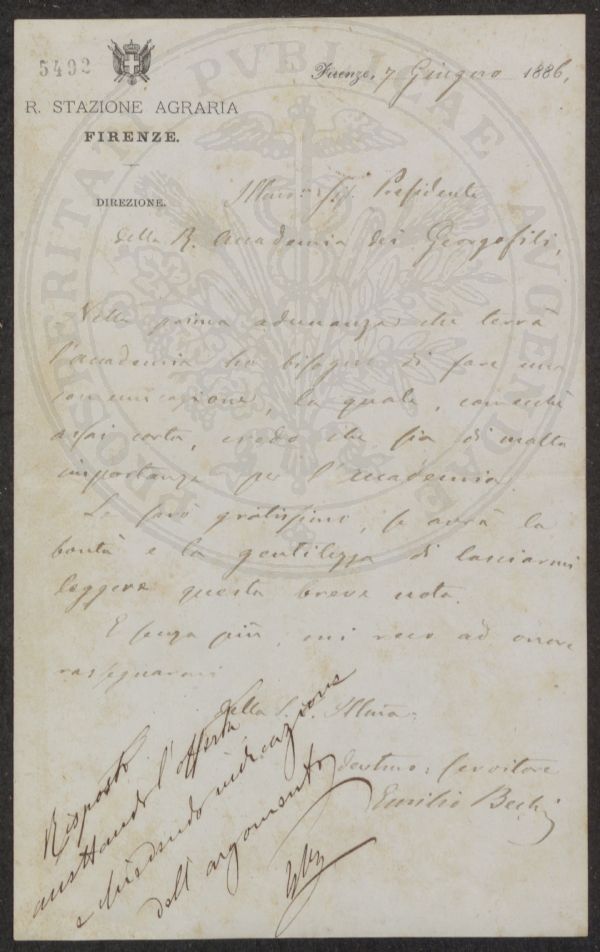 5492
R. STAZIONE AGRARIA
FIRENZE.
DIREZIONE.
Firenze, 7 Giugno 1886,
Illmo. Sig. Presidente
della R. Accademia dei Georgofili,
Nella prima adunanza che terrà
l'accademia ho bisogno di fare una
comunicazione, la quale, comecchè
assai corta, credo che sia di molta
importanza per l'accademia.
Le sarò gratissimo, se avrà la
bontà e la gentilezza di lasciarmi
leggere questa breve nota.
E senza più, mi reco ad onore
rassegnarmi
Della S. V. Illma.
Devtmo: servitore
Emilio Bechi
Risposto
accettando l'offerta
e chiedendo indicazione
dell'argomento
PVBLICAE
AVGENDAE
PROSPERITATI